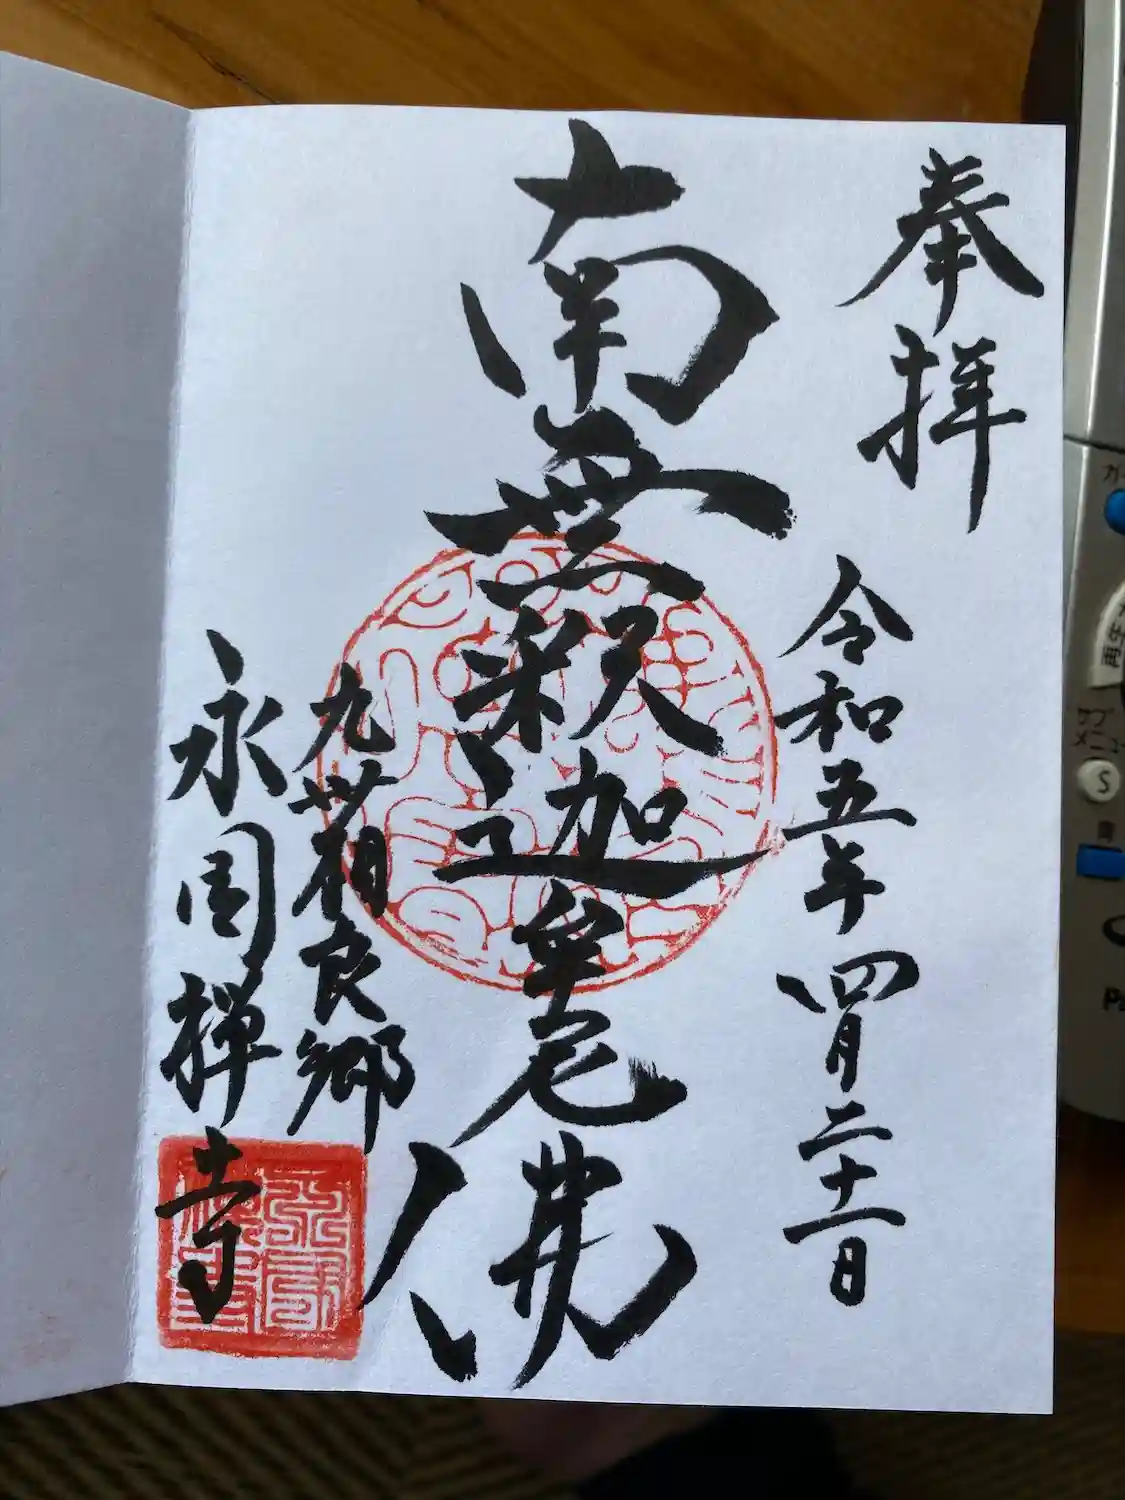 奉拝
令和五年四月二十一日
南無釈迦牟尼佛
九州相良郷
永国禅寺
サブ
メニュ
S
青